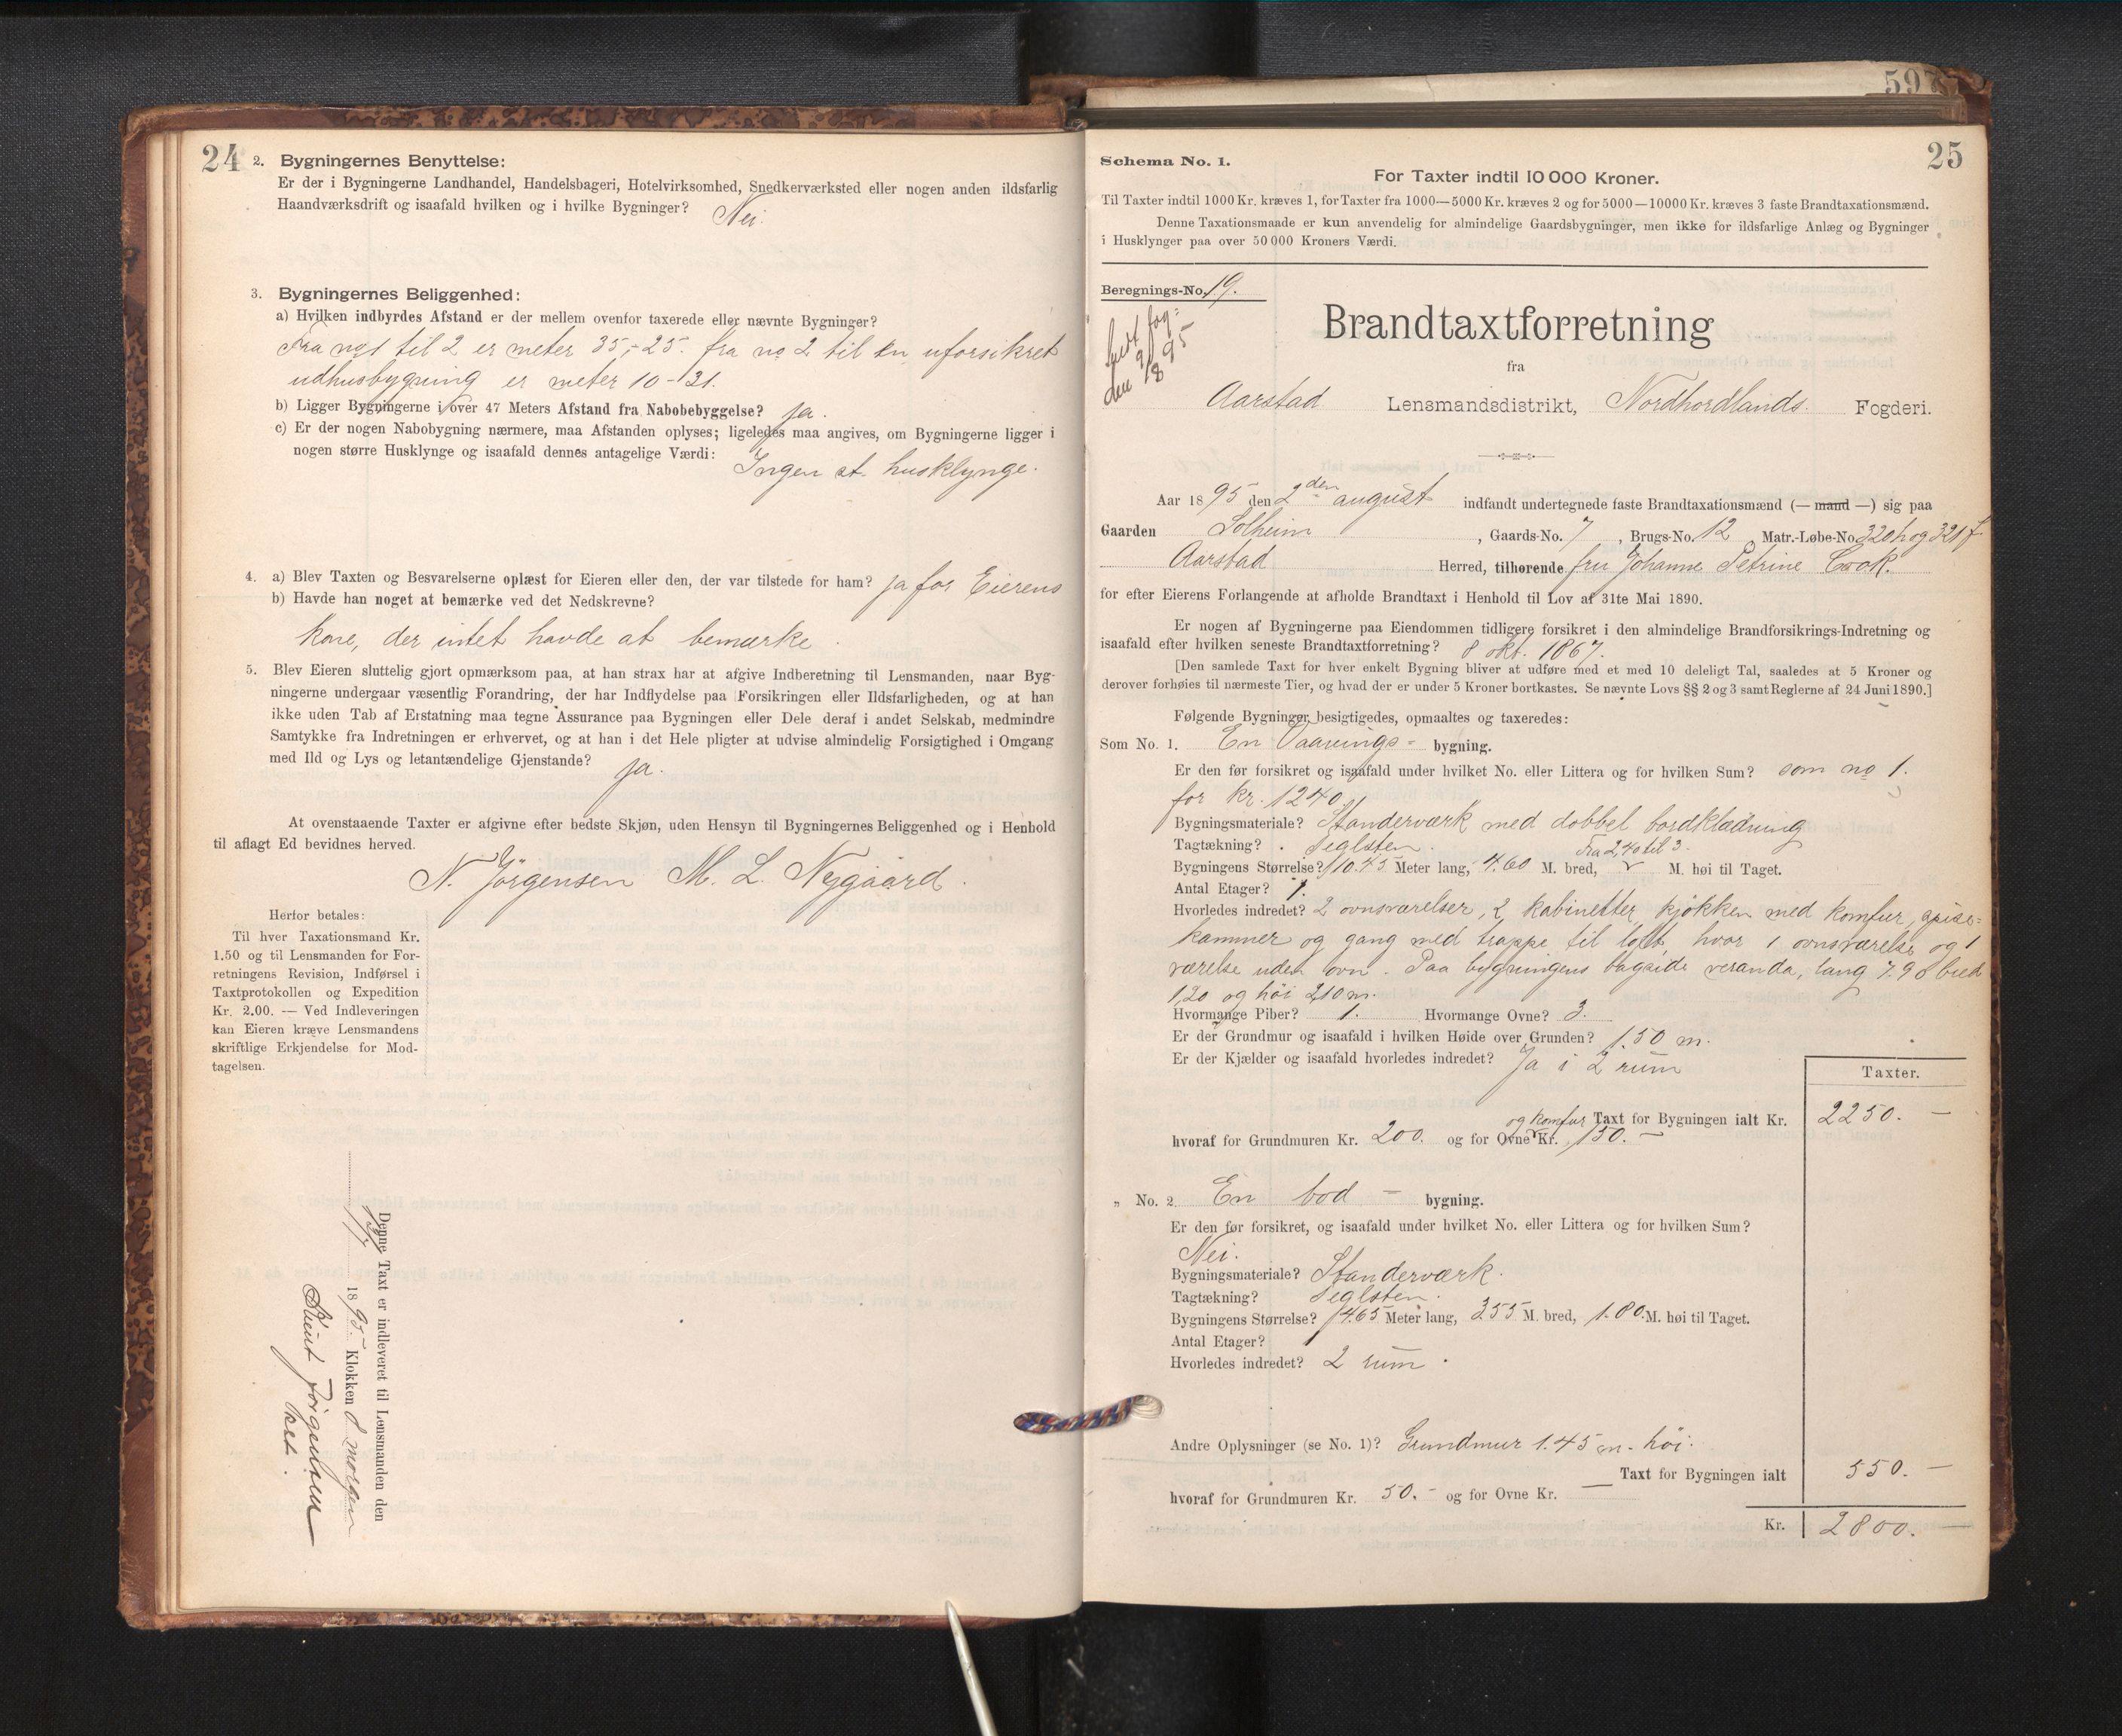 24
2. Bygningernes Benyttelse:
Er der i Bygningerne Landhandel, Handelsbageri, Hotelvirksomhed, Snedkerværksted eller nogen anden ildsfarlig
Haandværksdrift og isaafald hvilken og i hvilke Bygninger? Nei.
3. Bygningernes Beliggenhed:
a) Hvilken indbyrdes Afstand er der mellem ovenfor taxerede eller nævnte Bygninger?
Fra no 1 til 2 er meter 35,-25. fra no 2 til en uforsikret
udhusbygning er meter 10-31.
b) Ligger Bygningerne i over 47 Meters Afstand fra Nabobebyggelse? ja.
c) Er der nogen Nabobygning nærmere, maa Afstanden oplyses; ligeledes maa angives, om Bygningerne ligger i
nogen større Husklynge og isaafald dennes antagelige Værdi: Ingen st. husklynge.
4. a) Blev Taxten og Besvarelserne oplæst for Eieren eller den, der var tilstede for ham? ja for Eierens
b) Havde han noget at bemærke ved det Nedskrevne?
kone, der intet havde at bemærke.
5. Blev Eieren sluttelig gjort opmærksom paa, at han strax har at afgive Indberetning til Lensmanden, naar Byg-
ningerne undergaar væsentlig Forandring, der har Indflydelse paa Forsikringen eller Ildsfarligheden, og at han
ikke uden Tab af Erstatning maa tegne Assurance paa Bygningen eller Dele deraf i andet Selskab, medmindre
Samtykke fra Indretningen er erhvervet, og at han i det Hele pligter at udvise almindelig Forsigtighed i Omgang
med Ild og Lys og letantændelige Gjenstande? ja.
At ovenstaaende Taxter er afgivne efter bedste Skjøn, uden Hensyn til Bygningernes Beliggenhed og i Henhold
til aflagt Ed bevidnes herved.
N. Jörgensen M. L. Nygaard.
Herfor betales:
Til hver Taxationsmand Kr.
1.50 og til Lensmanden for For-
retningens Revision, Indførsel i
Taxtprotokollen og Expedition
Kr. 2.00. — Ved Indleveringen
kan Eieren kræve Lensmandens
skriftlige Erkjendelse for Mod-
tagelsen.
Denne Taxt er indleveret til Lensmanden den
1895 Klokken 8 morgen
Knut Jörgensen
kst.
597
25
Schema No. 1.
For Taxter indtil 10 000 Kroner.
Til Taxter indtil 1000 Kr. kræves 1, for Taxter fra 1000—5000 Kr. kræves 2 og for 5000—10000 Kr. kræves 3 faste Brandtaxationsmænd.
Denne Taxationsmaade er kun anvendelig for almindelige Gaardsbygninger, men ikke for ildsfarlige Anlæg og Bygninger
i Husklynger paa over 50 000 Kroners Værdi.
Beregnings-No. 19.
Sendt fog:
den 9/8 95
Brandtaxtforretning
fra
Aarstad Lensmandsdistrikt, Nordhordlands Fogderi.
Aar 1895 den 2den august indfandt undertegnede faste Brandtaxationsmænd (— mand —) sig paa
Gaarden Solheim, Gaards-No. 7, Brugs-No. 12, Matr.-Løbe-No. 320h og 321f
Aarstad Herred, tilhørende fru Johanne Petrine Cook.
for efter Eierens Forlangende at afholde Brandtaxt i Henhold til Lov af 31te Mai 1890.
Er nogen af Bygningerne paa Eiendommen tidligere forsikret i den almindelige Brandforsikrings-Indretning og
isaafald efter hvilken seneste Brandtaxtforretning? 8 okt. 1867.
[Den samlede Taxt for hver enkelt Bygning bliver at udføre med et med 10 deleligt Tal, saaledes at 5 Kroner og
derover forhøies til nærmeste Tier, og hvad der er under 5 Kroner bortkastes. Se nævnte Lovs §§ 2 og 3 samt Reglerne af 24 Juni 1890.]
Følgende Bygninger besigtigedes, opmaaltes og taxeredes:
Som No. 1. En Vaanings- bygning.
Er den før forsikret og isaafald under hvilket No. eller Littera og for hvilken Sum? som no 1.
for kr. 1240.
Bygningsmateriale? Standerværk med dobbel bordklædning
Tagtækning? Teglsten.
Fra 2,40 til 3.
Bygningens Størrelse? 10.45 Meter lang, 4.60 M. bred, M. høi til Taget.
Antal Etager? 1.
Hvorledes indredet? 2 ovnsværelser, 2 kabinetter, kjøkken med komfur, spise-
kammer og gang med trappe til loft, hvor 1 ovnsværelse og 1
værelse uden ovn. Paa bygningens bagside veranda, lang 7.98 bred
1,20 og høi 2,10 m.
Hvormange Piber? 1. Hvormange Ovne? 3.
Er der Grundmur og isaafald i hvilken Høide over Grunden? 1.50 m.
Er der Kjælder og isaafald hvorledes indredet? Ja i 2 rum
Taxter.
og komfur Taxt for Bygningen ialt Kr. 2250. —
hvoraf for Grundmuren Kr. 200. og for Ovne Kr. 150. —
„ No. 2 En bod — bygning.
Er den før forsikret, og isaafald under hvilket No. eller Littera og for hvilken Sum?
Nei.
Bygningsmateriale? Standerværk.
Tagtækning? Teglsten.
Bygningens Størrelse? 4.65 Meter lang, 3.55 M. bred, 1.80. M. høi til Taget.
Antal Etager?
Hvorledes indredet? 2 rum.
Andre Oplysninger (se No. 1)? Grundmur 1.45 m. høi.
Taxt for Bygningen ialt 550. —
hvoraf for Grundmuren Kr. 50. - og for Ovne Kr. —
Kr. 2800. —